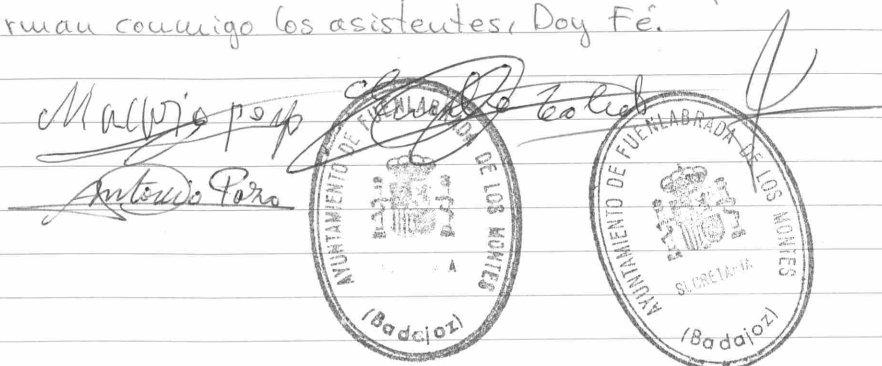 rman conmigo los asistentes, Doy Fé.
Antonio
AYUNTAMIENTO DE FUENLABRADA DE LOS MONTES
A
(Badajoz)
AYUNTAMIENTO DE FUENLABRADA DE LOS MONTES
SECRETARIA
(Badajoz)